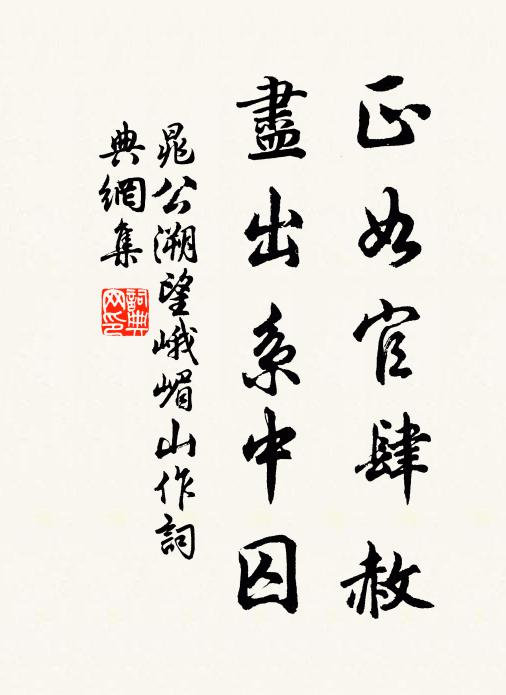 正如官肆赦
盡出系中囚
晁公溯望峨嵋山作詞
典網集
詞典
网印